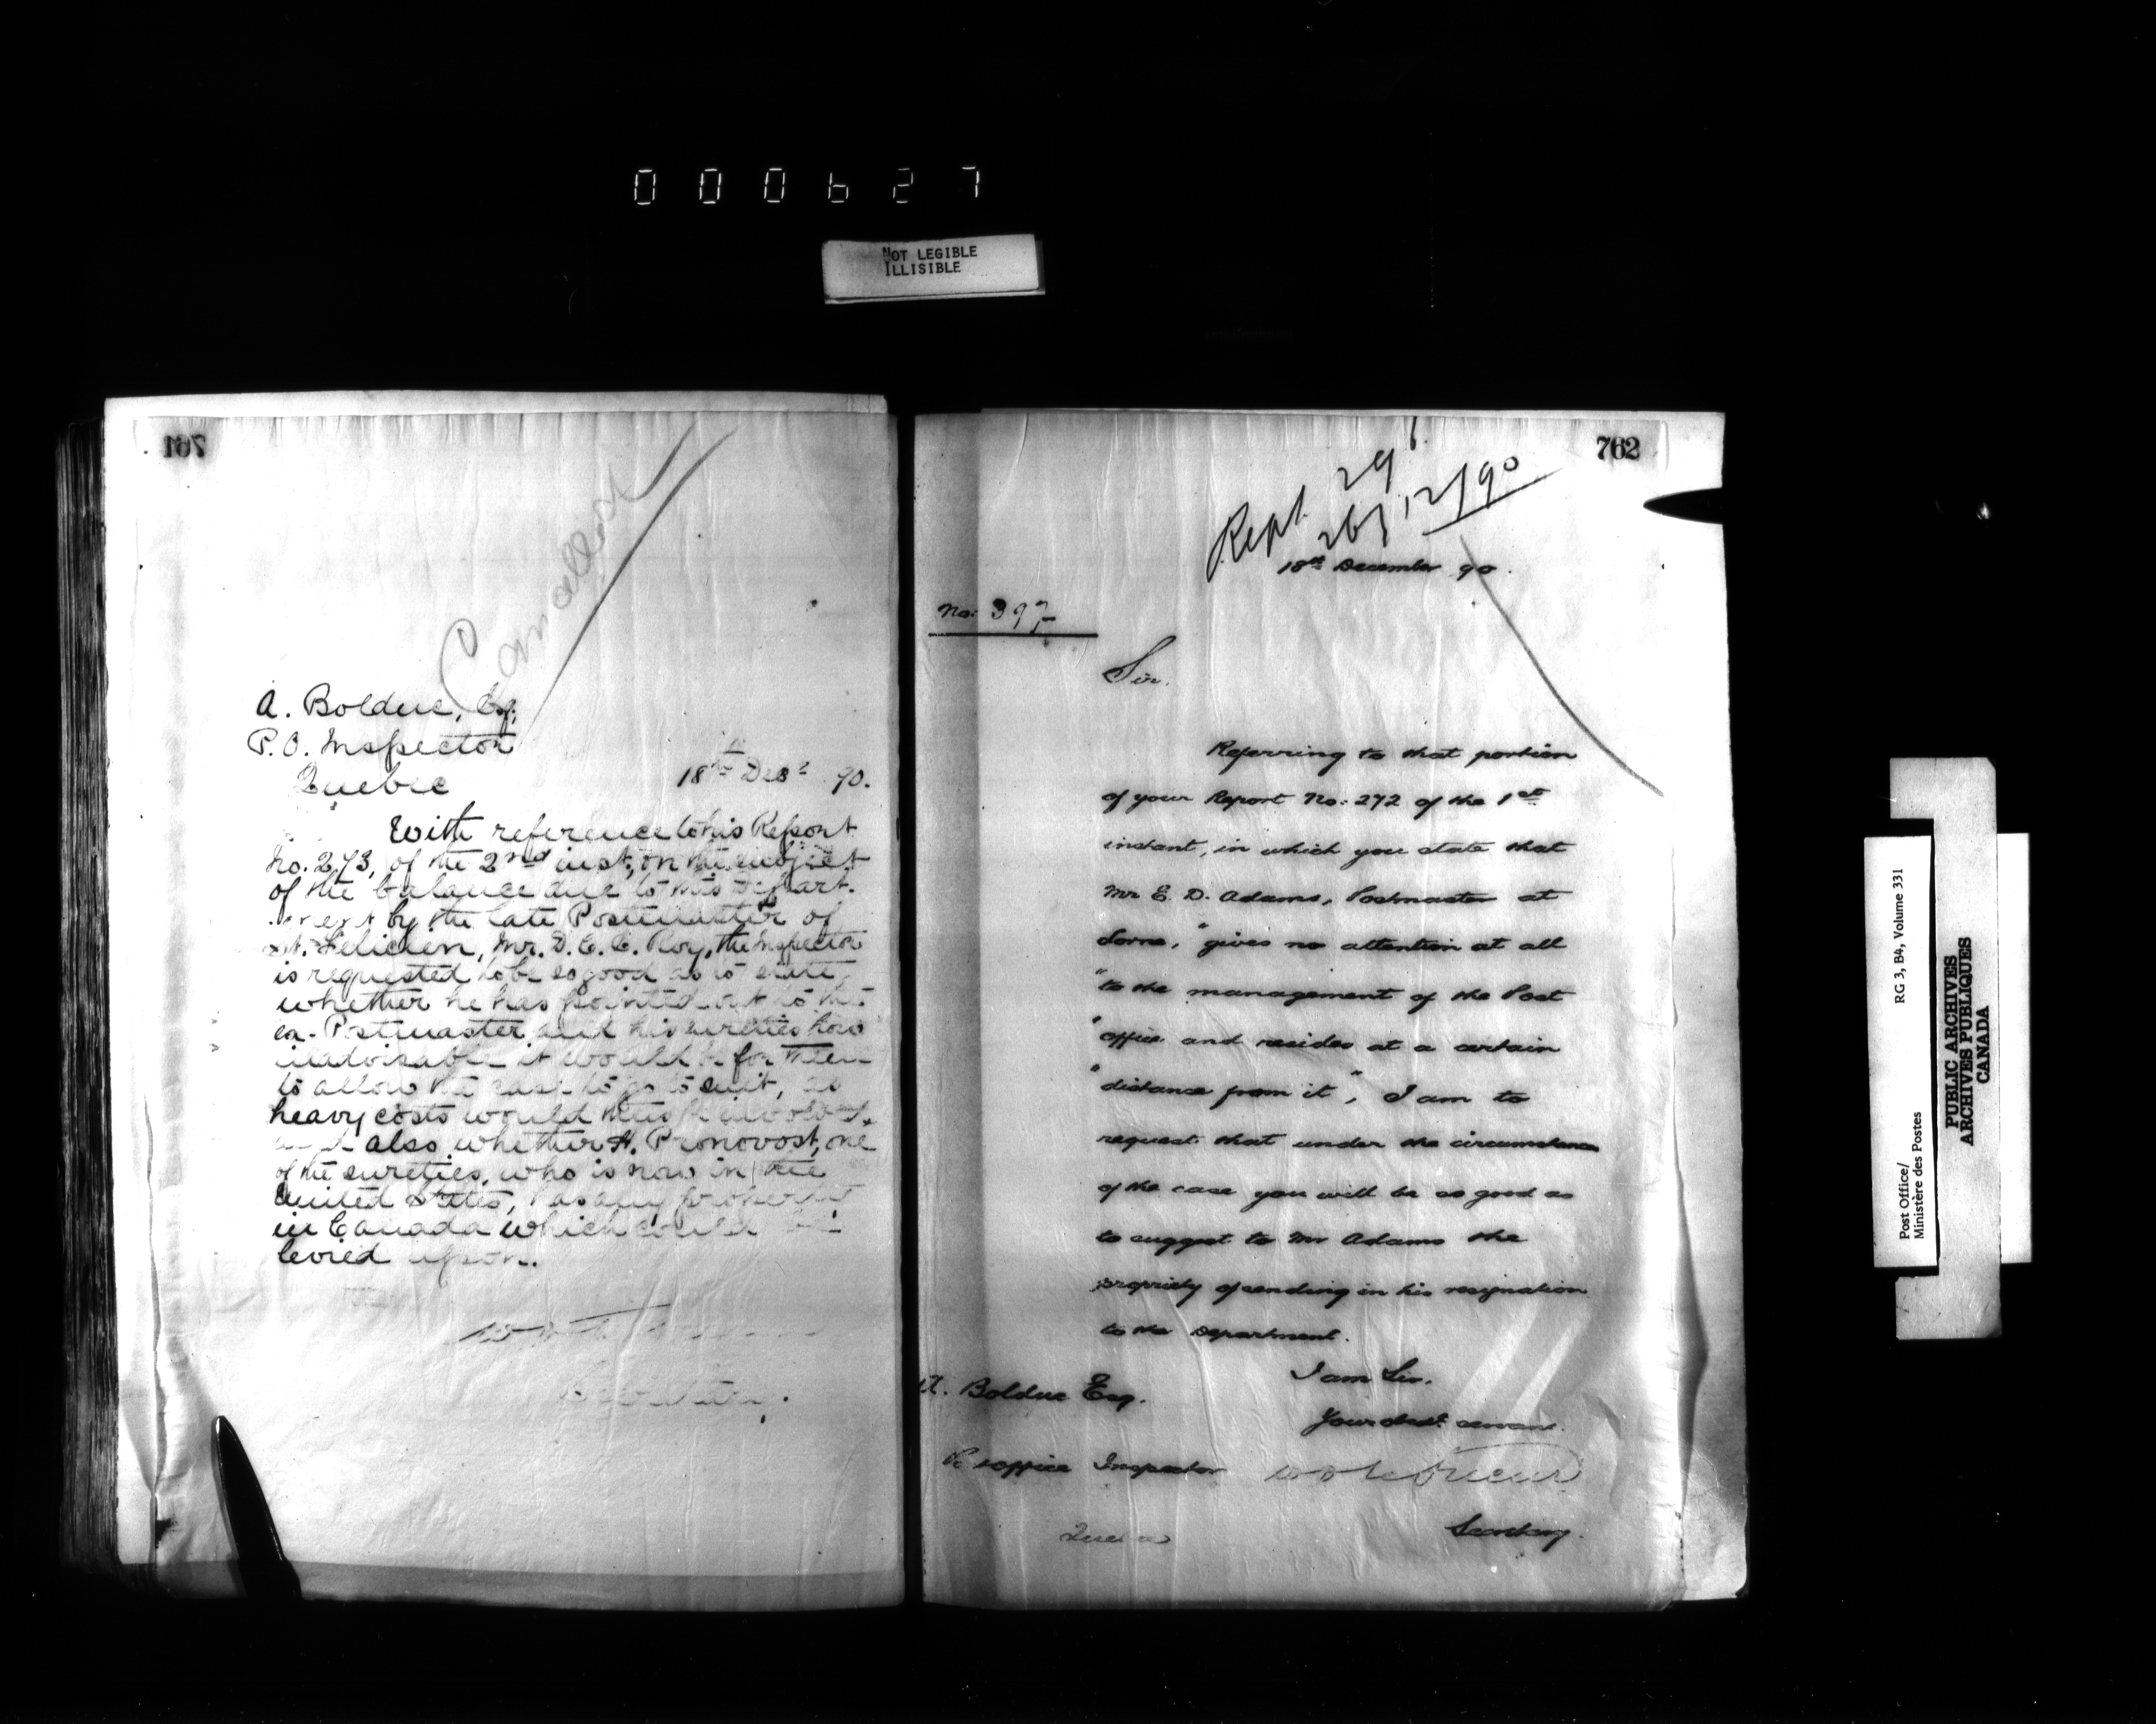 000627
NOT LEGIBLE
ILLISIBLE
761
Cancelled
A. Bolduc, Esq;
P.O. Inspector
Quebec
18th Decr 90.
With reference to his Report
No. 273, of the 2nd inst, on the subject
of the balance due to this Depart-
ment by the late Postmaster of
St. Felicien, Mr. D. E. C. Roy, the Inspector
is requested to be so good as to state
whether he has pointed out to the
ex-Postmaster and his sureties how
inadvisable it would be for them
to allow the case to go to suit, as
heavy costs would thus be involved,
and also whether H. Pronovost, one
of the sureties, who is now in the
United States, has any property
in Canada which could be
levied upon.
Secretary.
762
Rept. 291
26/12/90
18th December 90.
No: 397
Sir.
Referring to that portion
of your Report No: 272 of the 1st
instant, in which you state that
Mr E. D. Adams, Postmaster at
Lorne, "gives no attention at all
"to the management of the Post
"office and resides at a certain
"distance from it", I am to
request that under the circumstances
of the case you will be so good as
to suggest to Mr Adams the
propriety of sending in his resignation
to the Department.
I am Sir.
Your obedt. servant.
A. Bolduc Esq.
P. office Inspector
Quebec
Secretary.
Post Office/
Ministère des Postes
RG 3, B4, Volume 331
PUBLIC ARCHIVES
ARCHIVES PUBLIQUES
CANADA